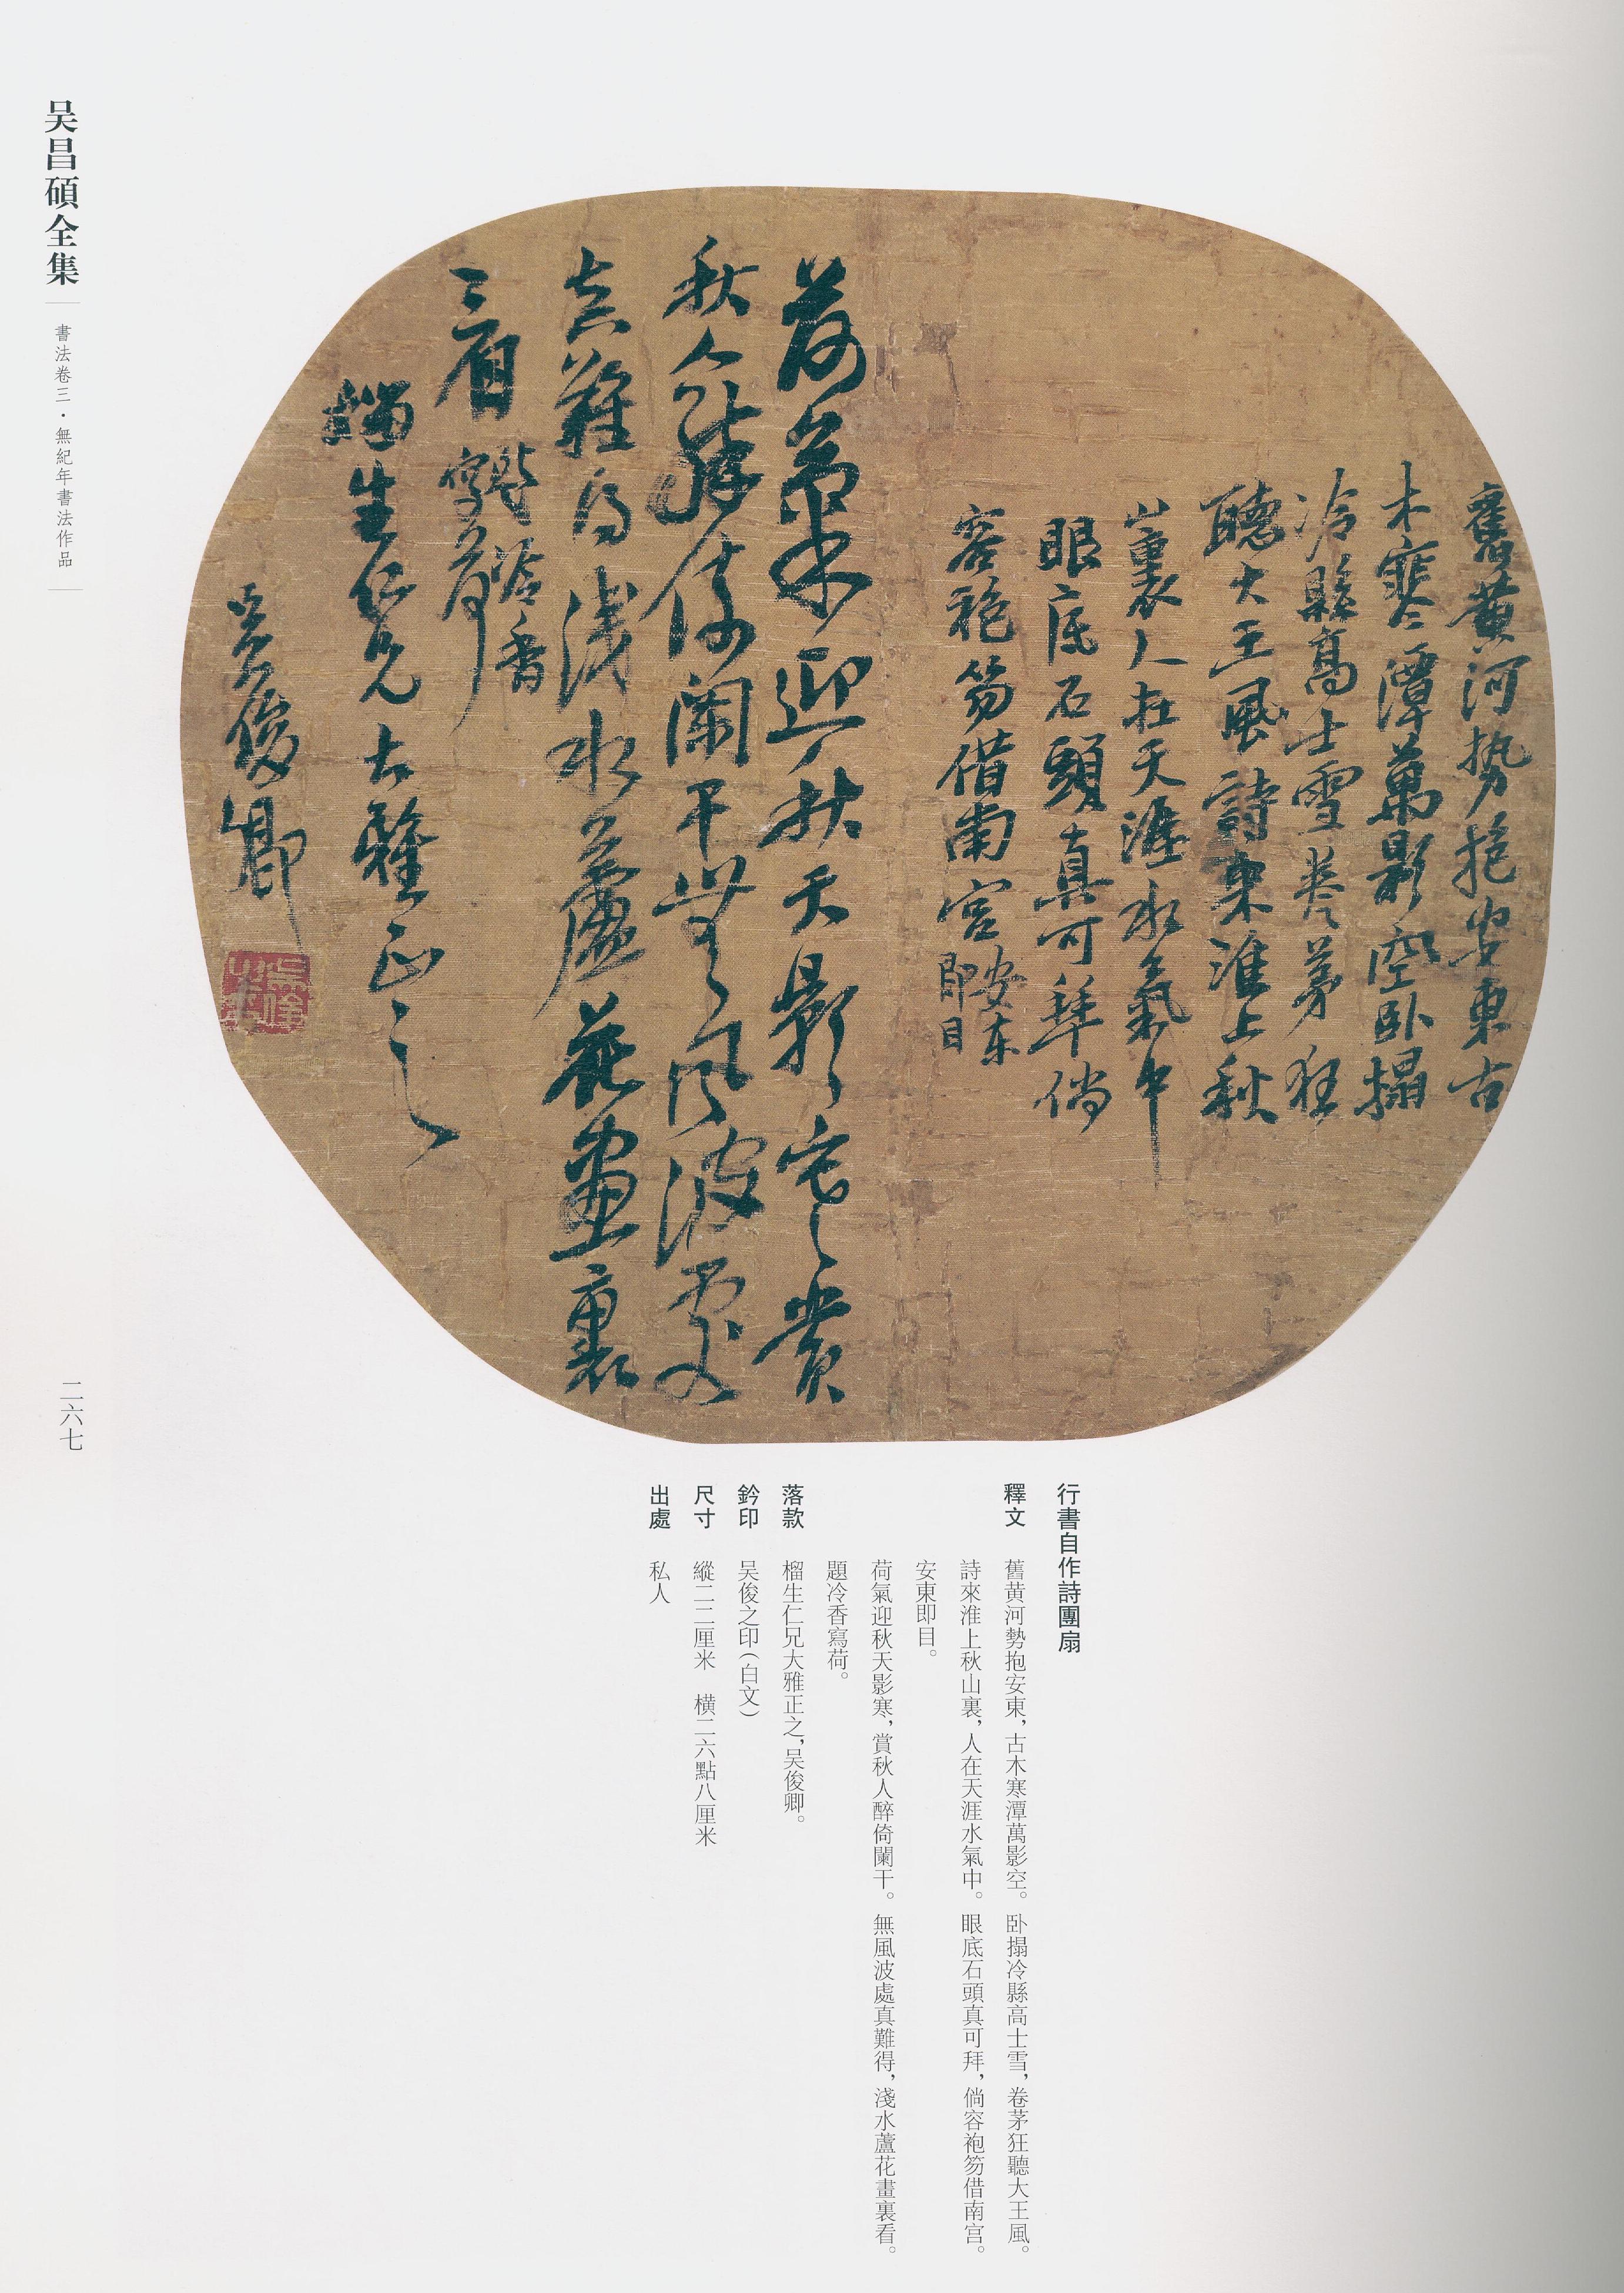 舊黃河勢抱安東古
木寒潭萬影空卧搨
冷縣高士雪卷茅狂
聽大王風詩來淮上秋
山裏人在天涯水氣中
眼底石頭真可拜倘
容袍笏借南宮
安东
即目
荷氣迎秋天影寒賞
秋人醉倚闌干無風波處
真難得淺水蘆花畫裏
看
題冷香
寫荷
榴生仁兄大雅正之
吴俊卿
吴俊之印
行書自作詩團扇
釋文 舊黄河勢抱安東，古木寒潭萬影空。卧搨冷縣高士雪，卷茅狂聽大王風。
詩來淮上秋山裏，人在天涯水氣中。眼底石頭真可拜，倘容袍笏借南宫。
安東即目。
荷氣迎秋天影寒，賞秋人醉倚闌干。無風波處真難得，淺水蘆花畫裏看。
題冷香寫荷。
落款 榴生仁兄大雅正之，吴俊卿。
鈐印 吴俊之印（白文）
尺寸 縱二二厘米 横二六點八厘米
出處 私人
吴昌碩全集
書法卷三·無紀年書法作品
二六七